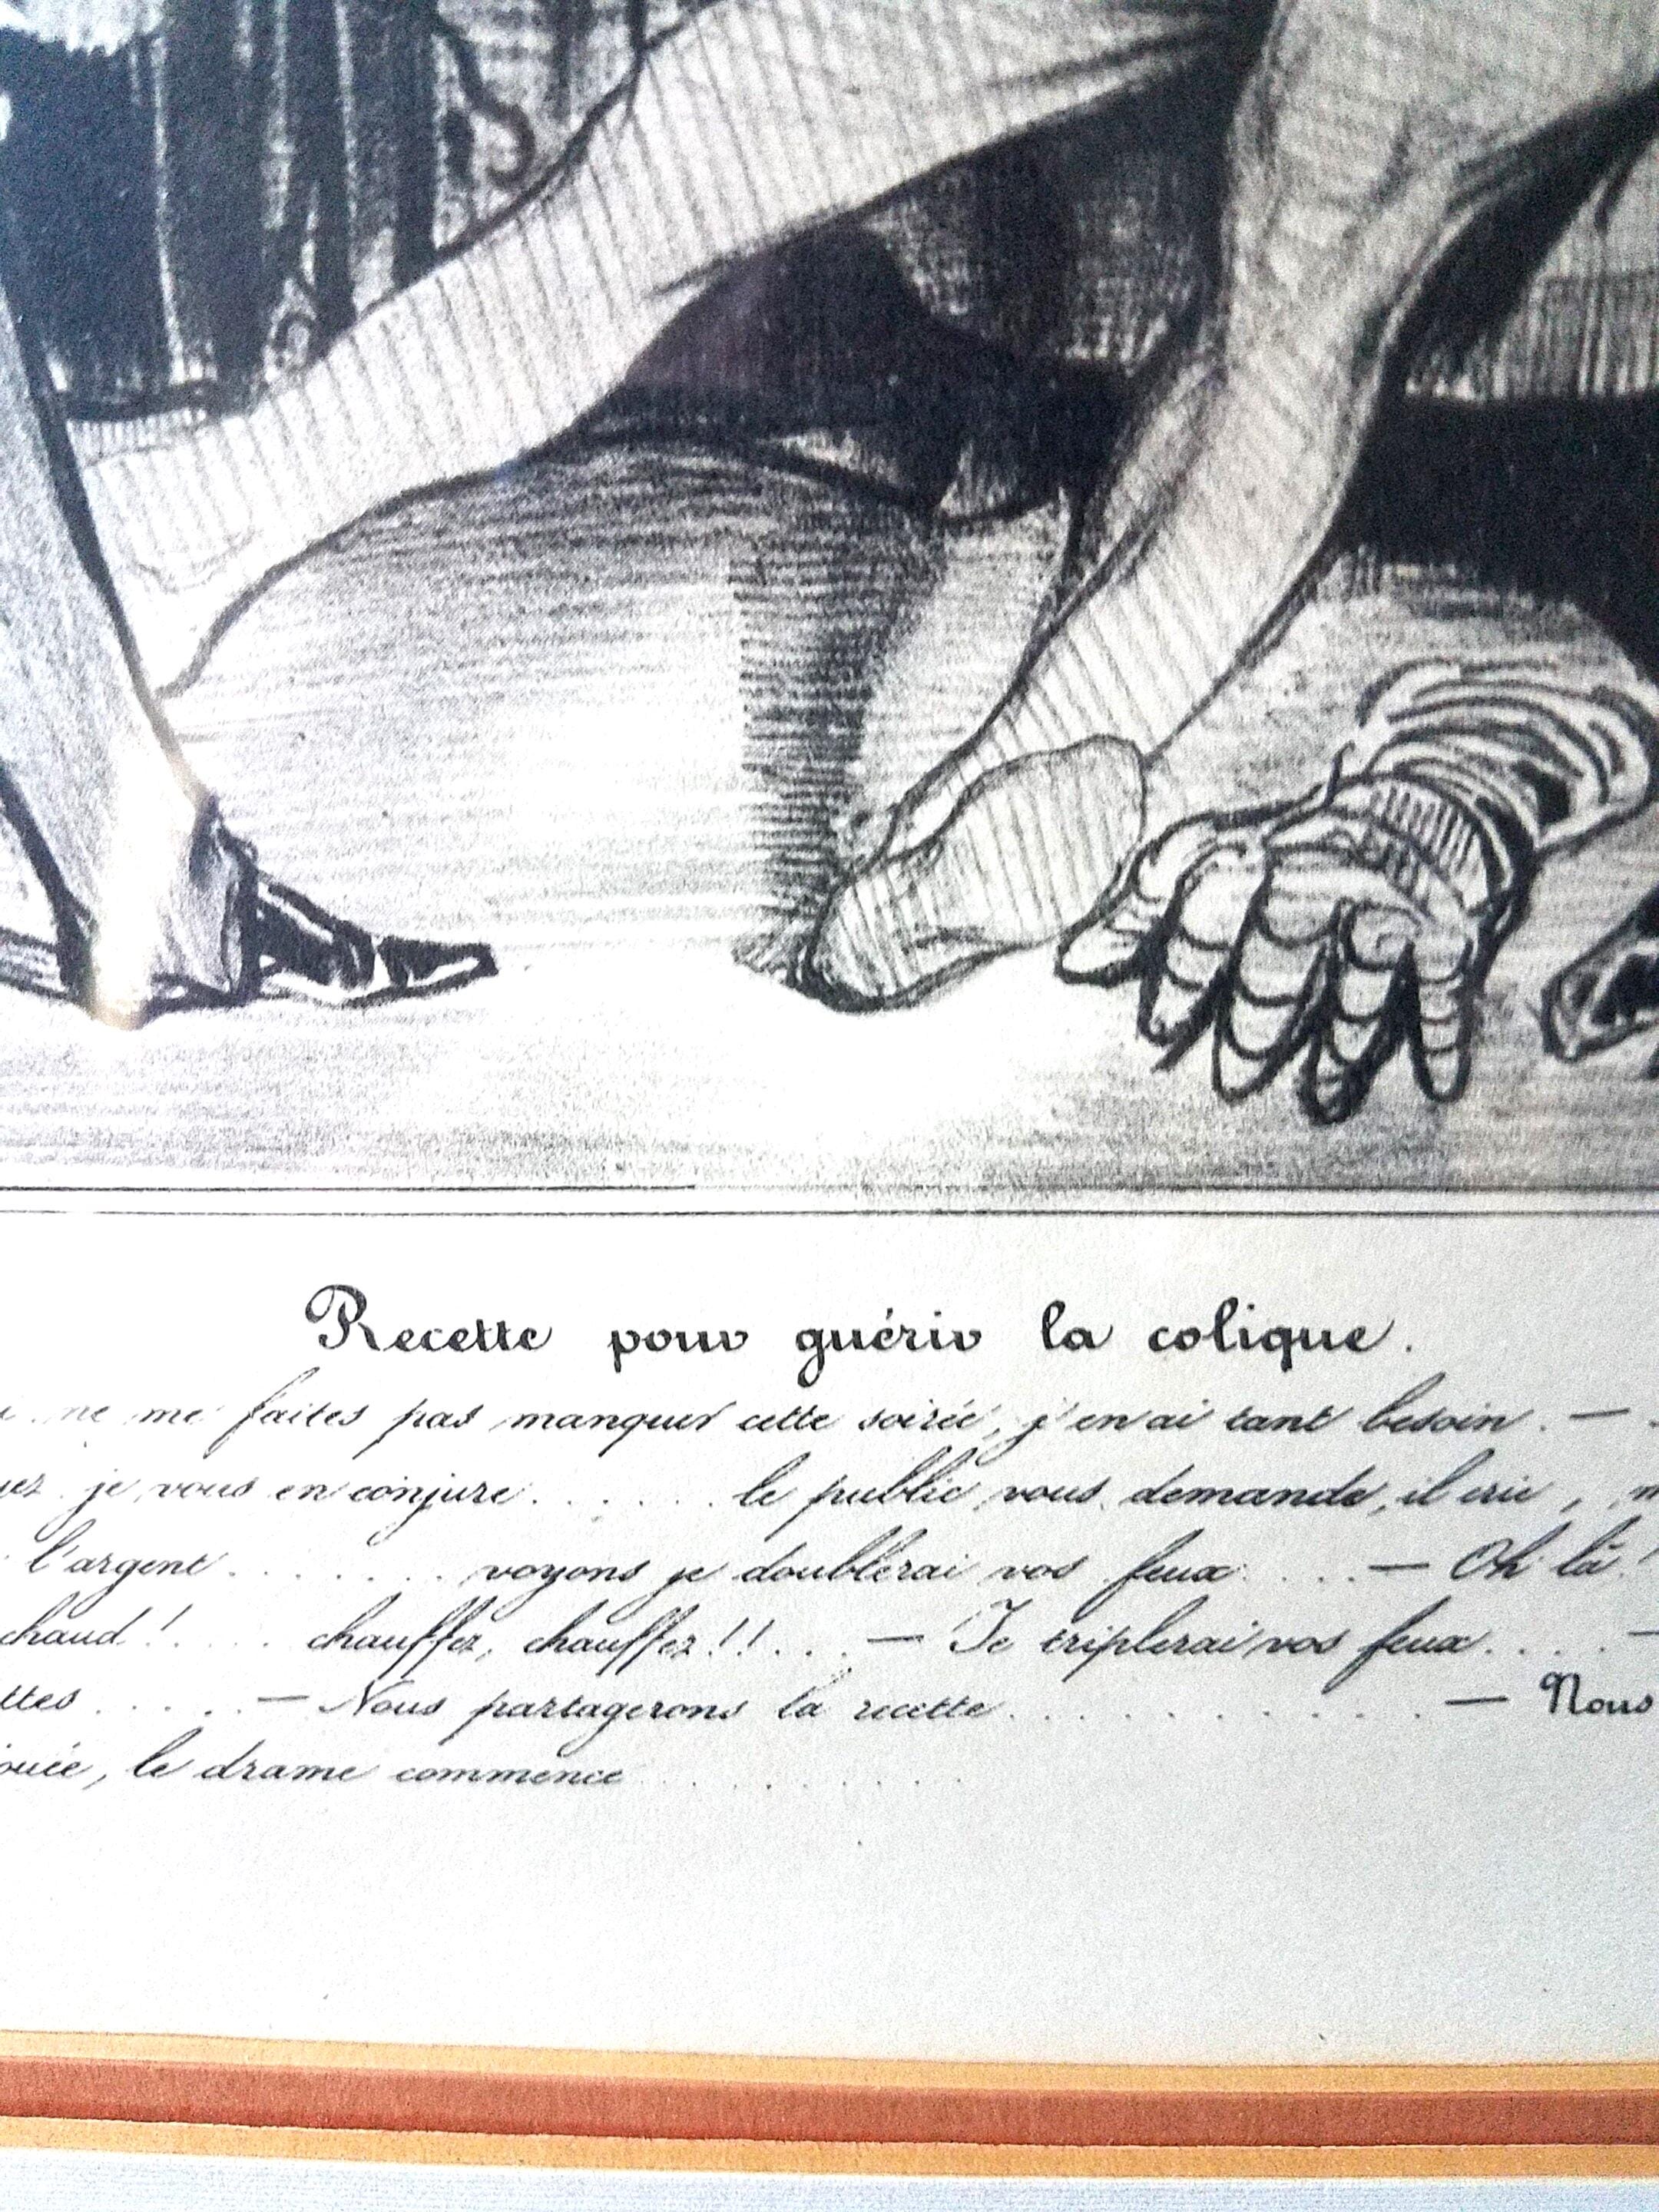 Recette pour guérir la colique.
ne me faites pas manquer cette soirée, j'en ai tant besoin. —
je vous en conjure...... le public vous demande, il crie,
l'argent....... voyons je doublerai vos feux.... — Oh là!
chaud!.... chauffez, chauffez!!... — Je triplerai vos feux..... —
ttes..... — Nous partagerons la recette............ — Nous
ouée, le drame commence............